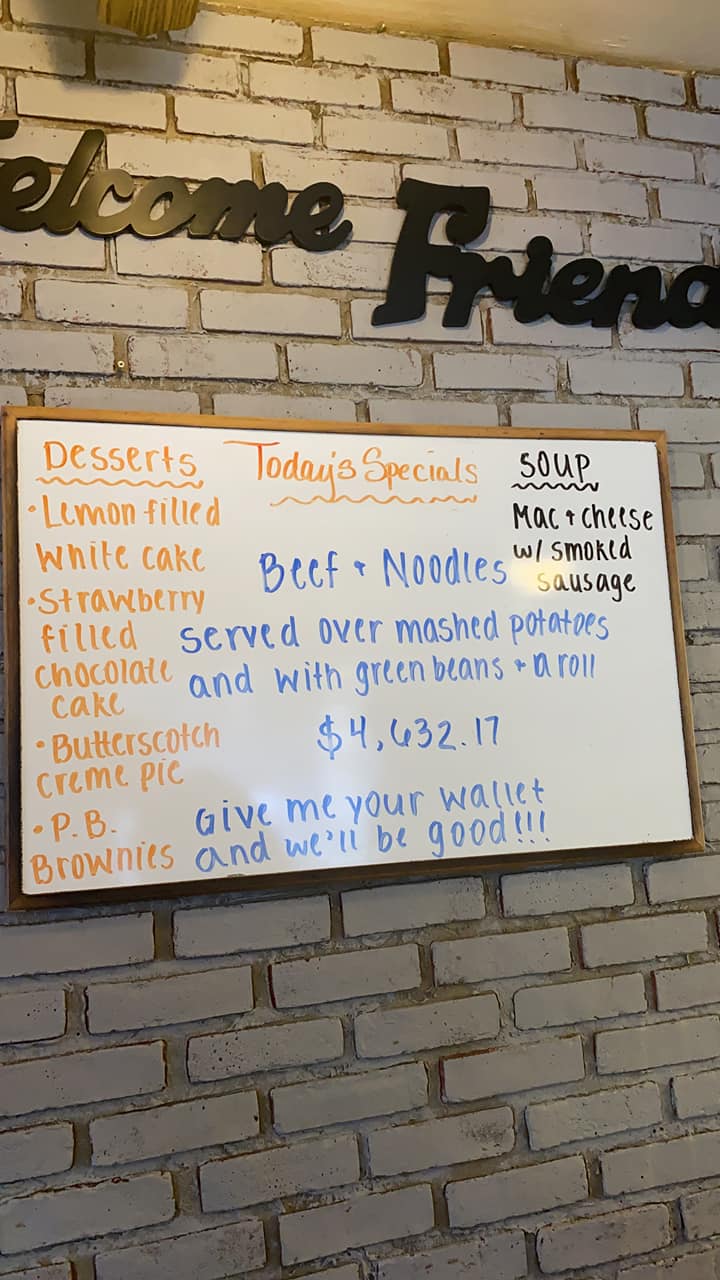 Welcome Friends
Desserts
• Lemon filled
White cake
• Strawberry
filled
chocolate
cake
• Butterscotch
creme pie
• P.B.
Brownies
Today's Specials
Beef + Noodles
served over mashed potatoes
and with green beans + a roll
$4,632.17
Give me your wallet
and we'll be good!!!
SOUP
Mac + cheese
w/ smoked
sausage